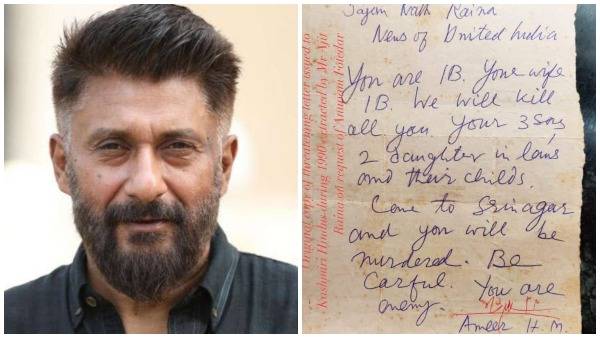 Nath Raina
News of United India
You are IB. Your wife
IB. We will kill
all you Your 3 Sons,
2 daughter in laws
and their childs.
Come to Srinagar
and you will be
murdered. Be
Carful. You are
enemy.
Ameer H.M.
Original copy of threatening letter issued to
Kashmiri Hindus during 1990 extracted by Mr Ajit
Raina on request of Anupam Fotedar